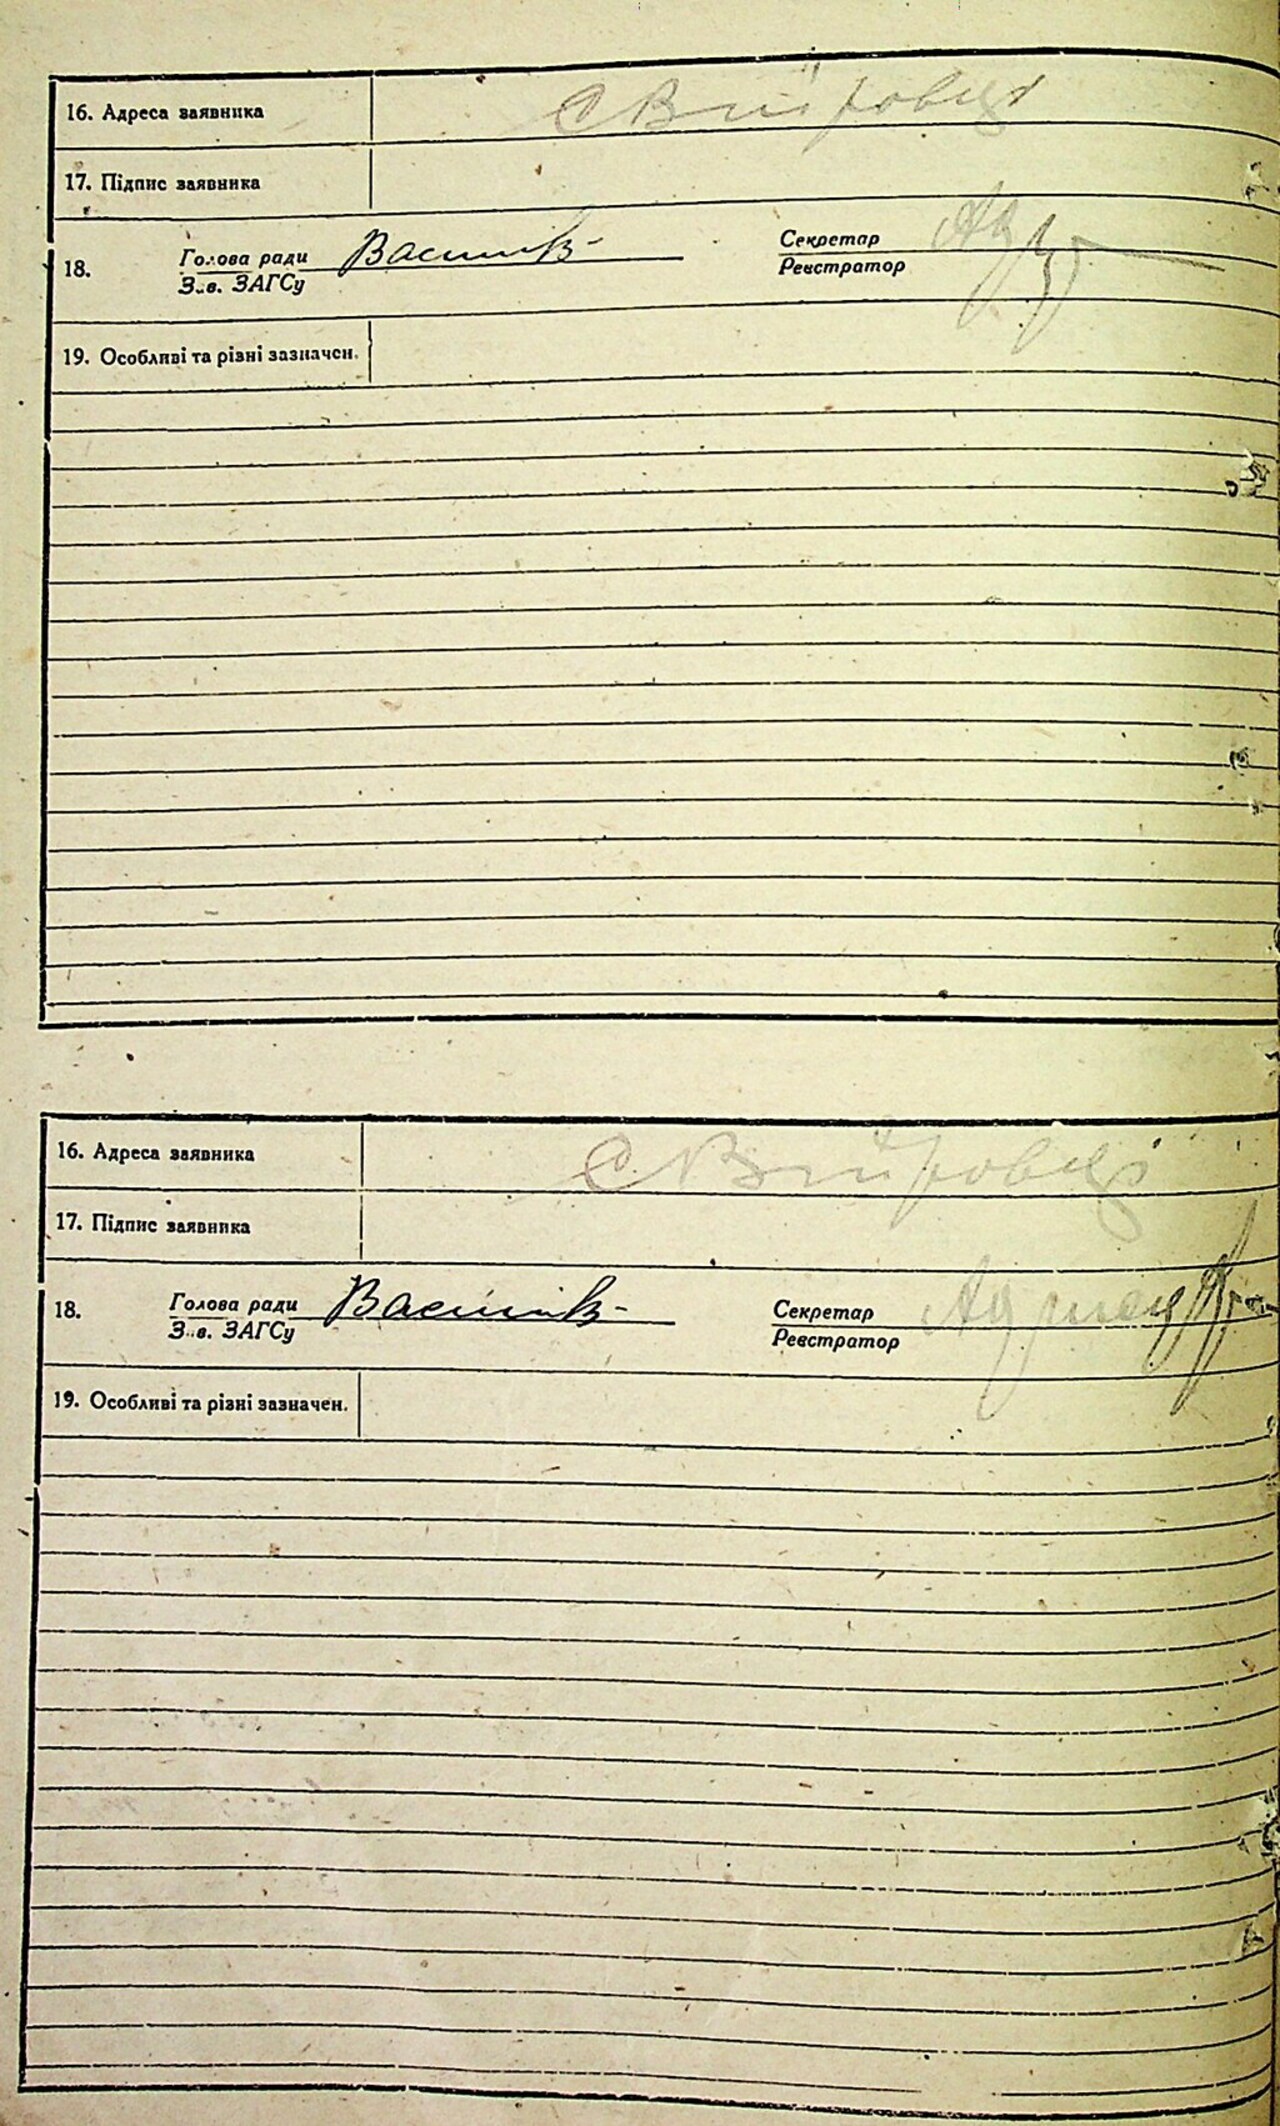 16. Адреса заявника С Війтовці
17. Підпис заявника
18. Голова ради Васильків Секретар
З..в. ЗАГСу Реєстратор
19. Особливі та різні зазначен.
16. Адреса заявника С. Війтовці
17. Підпис заявника
18. Голова ради Васильків Секретар
З..в. ЗАГСу Реєстратор
19. Особливі та різні зазначен.